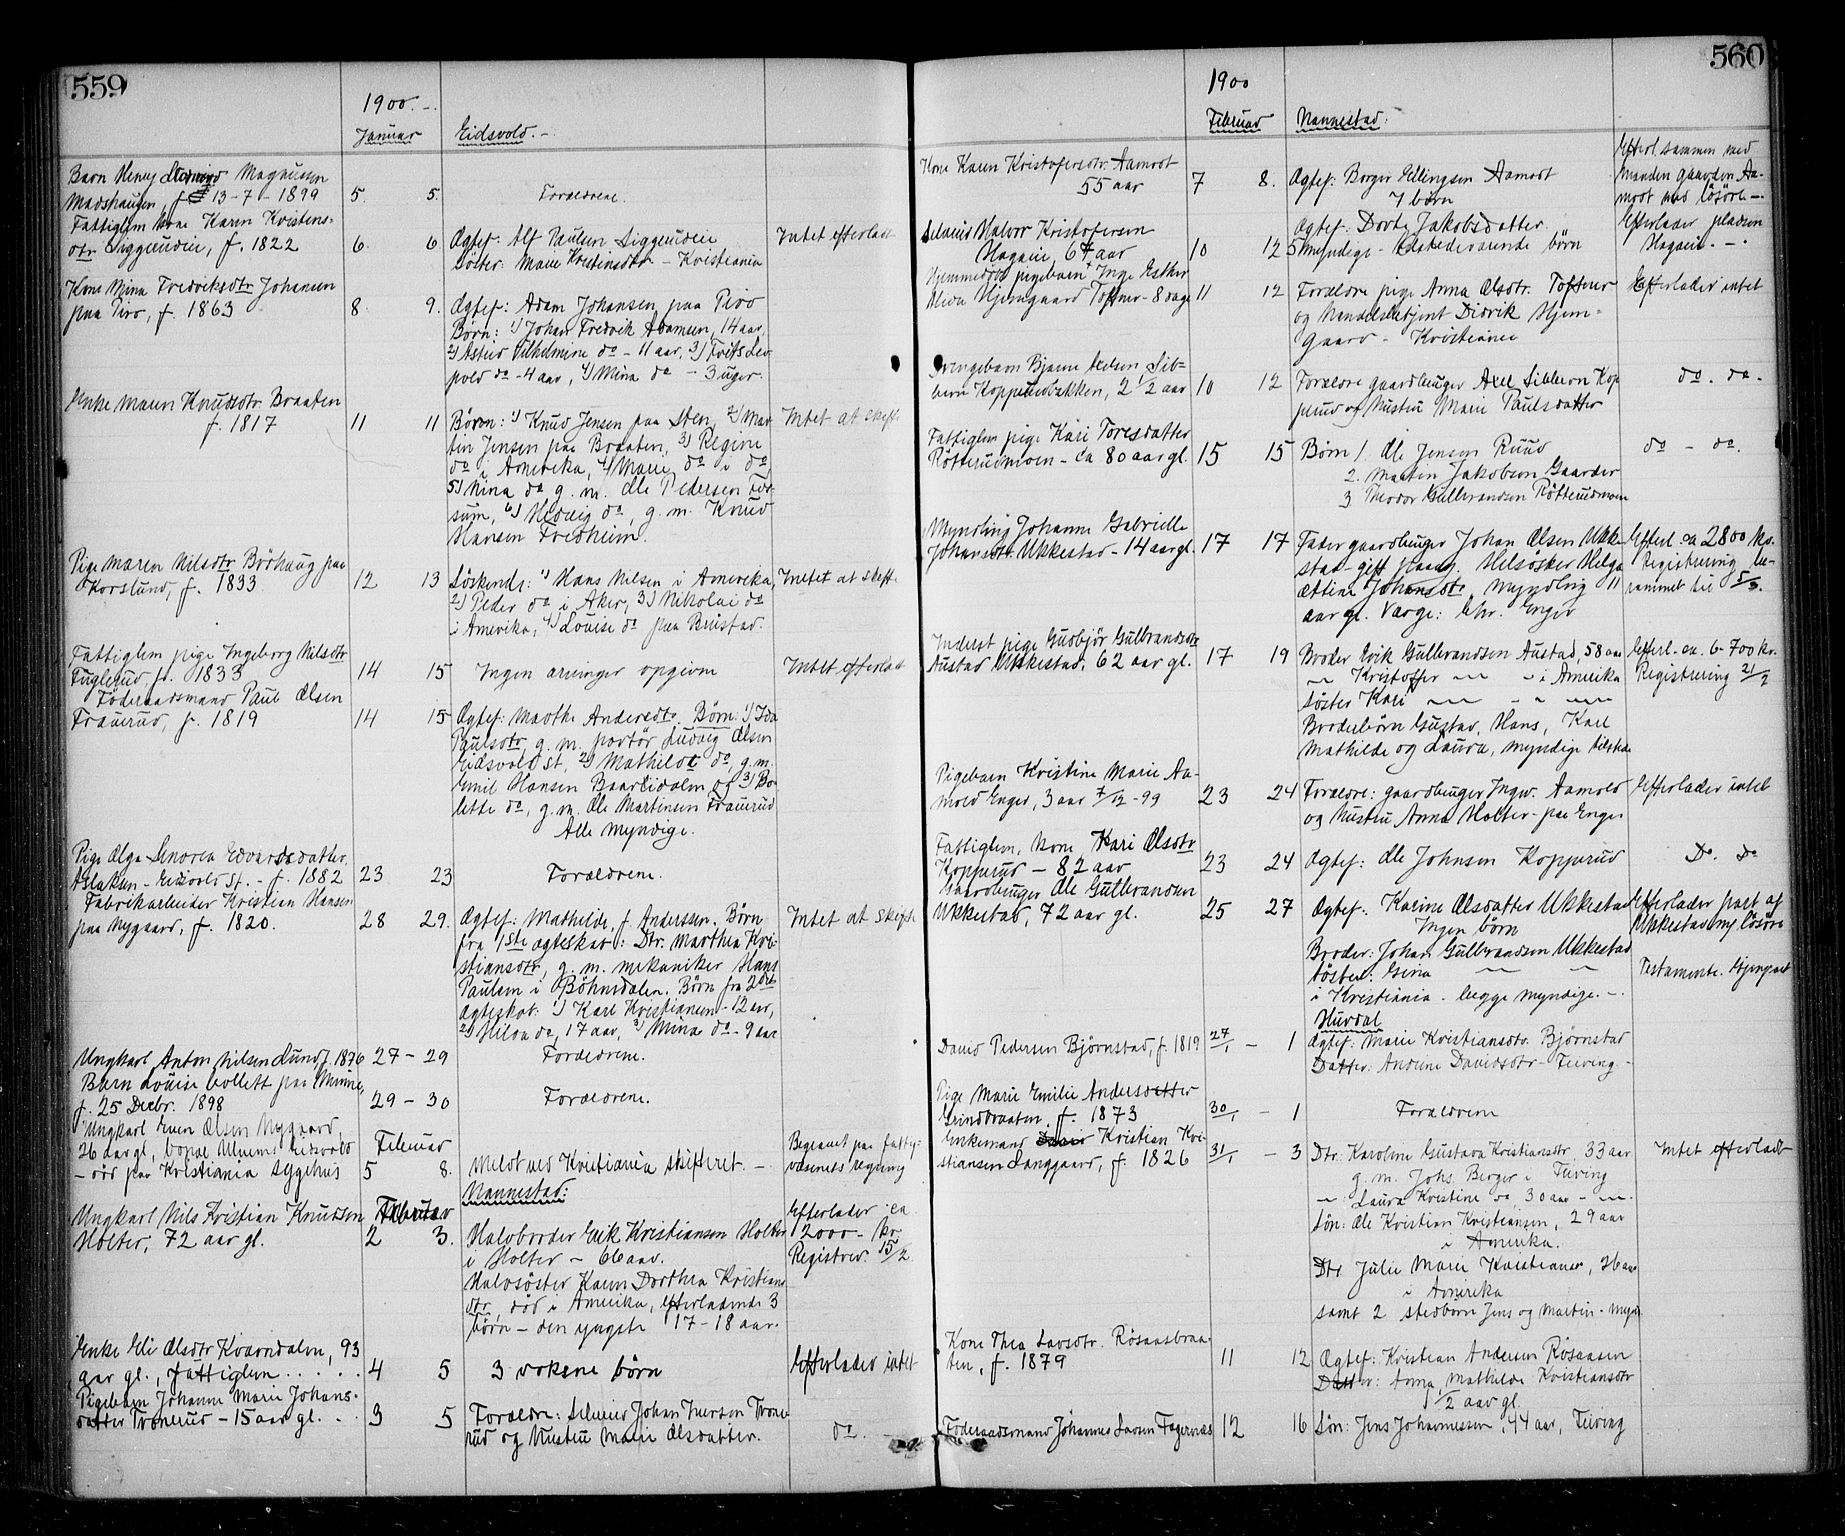 559
1900.-
Januar Eidsvold.-
Barn Henry Magnussen
Madshaugen, f. 13-7-1899 5. 5. Forældrene.
Fattiglem kone Karen Kristens-
dtr. Siggerudeie, f. 1822 6. 6 Ægtef: Alf Paulsen Siggerudeie Intet efterladt
Søster: Marie Kristensdtr - Kristiania
Kone Mina Fredriksdtr Johansen
paa Piro, f. 1863 8. 9. Ægtef: Adam Johansen paa Piro
Børn: 1) Johan Fredrik Adamsen, 14 aar,
2) Astrid Vilhelmine do - 11 aar, 3) Frits Leo
pold do - 4 aar, 4) Mina do - 3 uger.
Enke Maren Knudsdtr. Braaten
f. 1817 11 11 Børn: 1) Knud Jensen paa Sten, 2) Mar
tin Jensen paa Braaten, 3) Regine Intet at skifte
do i Amerika, 4) Marie do i do,
5) Mina do g. m. Ole Pedersen Fos-
sum, 6) Hedvig do, g. m. Knud
Hansen Fredheim.
Pige Maren Nilsdtr Børhaug paa
Korslund, f. 1833 12 13 Søskende: 1) Hans Nilsen i Amerika, Intet at skifte
2) Peder do i Aker, 3) Nikolai do
i Amerika, 4) Louise do paa Bustad.
Fattiglem pige Ingeborg Nilsdtr
Fuglerud, f. 1833 14 15 Ingen arvinger opgivne Intet efterladt
Föderaadsmand Paul Olsen
Fraurud, f. 1819 14 15 Ægtef: Marthe Andersdtr. Børn: 1) Ida
Paulsdtr, g. m. portör Ludvig Olsen
Eidsvold st, 2) Mathilde do, g. m.
Emil Hansen Baarlidalen og 3) Bo-
lette do, g. m. Ole Martinsen Fraurud
Alle myndige.
Pige Olga Lenorea Edvardsdatter
Aslaksen - Eidsvold st. - f. 1882 23 23 Forældrene.
Fabrikarbeider Kristian Hansen
paa Nygaard, f. 1820. 28 29. Ægtef: Mathilde, f. Anderssen. Børn Intet at skifte
fra 1ste ægteskab: Dtr. Marthea Kri-
stiansdtr, g. m. mekaniker Hans
Paulsen i Böhnsdalen. Børn fra 2det
Ægteskab: 1) Karl Kristiansen - 12 aar,
2) Hilda do, 17 aar, 3) Mina do - 9 aar
Ungkarl Anton Nilsen Lund f. 1876 27 - 29 Forældrene.
Barn Louise Bollett paa Minne,
f. 25 Decbr. 1898 29 - 30 Forældrene.
Ungkarl Even Olsen Nygaard,
26 aar gl, bopæl Eidsvold Februar Begravet paa fattig-
- död paa Kristiania sygehus 5 8. Meldt ved Kristiania skifteret. - væsenets regning
Nannestad:
Ungkarl Nils Kristian Knudsen Februar Efterlader ca
Holter, 72 aar gl. 2 3. Halvbroder Erik Kristiansen Holter 2000 - kr.
i Holter - 66 aar. Registrer. 15/2
Halvsöster Karen Dorthea Kristians
dtr, död i Amerika, efterladende 3
börn - den yngste 17-18 aar.
Enke Eli Olsdtr Kvarndalen, 93
aar gl., fattiglem . . . . . 4 5 3 voksne börn Efterlader intet
Pigebarn Johanne Marie Johans-
datter Tronerud - 15 aar gl. . . 3 5 Forældre: Selveier Johan Iversen Trone
rud og Hustru Marie Olsdatter. do. -
560
1900
Februar Nannestad:
Kone Karen Kristofersdtr. Aamodt Efterl. sammen med
55 aar 7 8. Ægtef: Borger Ellingsen Aamodt manden gaarden Aa-
7 børn modt med løsöre -
Selveier Halvor Kristofersen Ægtef: Dorte Jakobsdatter Efterlader pladsen
Hagaeie, 67 aar 10 12 5 myndige tilstedeværende börn Hagaeie. -.
Hjemmedöbt pigebarn Inge Esther
Hjemgaard Toftner - 8 dage 11 12 Forældre pige Anna Olsdtr. Toftner Efterlader intet
og Handelsbetjent Didrik Hjem-
gaard - Kristiania
Drengebarn Bjarne Axelsen Sib-
bern Kopperudbakken, 2 1/2 aar 10 12 Forældre gaardbruger Axel Sibbern Kop do. do.
perud og Hustru Marie Paulsdatter
Fattiglem pige Kari Toresdatter
Rötterudmoen - ca 80 aar gl. 15 15 Børn 1. Ole Jensen Ruud do - do.
2. Martin Jakobsen Gaarder
3 Theodor Gulbrandsen Rötterudmoen
Myndling Johanne Gabrielle
Johansdtr. Ukkestad - 14 aar gl. 17 17 Fader gaardbruger Johan Olsen Ukke Efterl. ca 2800 kr.
stad - gift paany. Helsösker Helga Registrering be-
Johansdtr. myndling 11 rammet til 5/3.
aar gl. Værge: Chr. Enger
Inderst pige Gudbjör Gulbrandsdtr
Austad Ukkestad, 62 aar gl. 17 19 Broder Erik Gulbrandsen Austad, 58 aar Efterl. ca. 6-700 kr.
〃 Kristoffer 〃 - i Amerika Registrering 21/2
Söster Kari 〃 - 〃 〃
Broderbörn Gustav, Hans, Karl
Mathilde og Laura, myndige tilstede
Pigebarn Kristine Marie Aa-
mold Enger, 3 aar 7/12-99 23 24 Forældre: gaardbruger Ingv. Aamold Efterlader intet
og Hustru Anna Holter - paa Enger
Fattiglem, kone Kari Olsdtr
Kopperud - 82 aar 23 24 Ægtef: Ole Johnsen Kopperud Do. Do
Gaardbruger Ole Gulbrandsen
Ukkestad, 72 aar gl. 25 27 Ægtef: Karine Olsdatter Ukkestad Efterlader part af
Ingen börn Ukkestad og lösöre
Broder: Johan Gulbrandsen Ukkestad
Söster: Gina 〃 〃 Testamente.
i Kristiania. begge myndige. -.
Hurdal
David Pedersen Bjørnstad, f. 1819 27/1 - 1 Ægtef: Marie Kristiansdtr. Bjørnstad
Datter: Andrine Davidsdtr - Feiring -
Pige Marie Emilie Andersdatter
Grindbraaten, f. 1873 30/1 - 1 Forældrene
Enkemand Kristian Kri-
stiansen Langgaard, f. 1826 31/1 - 3 Dtr. Karoline Gustava Kristiansdtr, 33 aar Intet efterladt
g. m. Johs. Berger i Feiring
〃 Laura Kristine do 30 aar - 〃.
Søn: Ole Kristian Kristiansen, 29 aar
i Amerika.
Dtr. Julie Marie Kristiansen, 26 aar
i Amerika
samt 2 stedbörn Jens og Martin - mynd.
Kone Thea Larsdtr. Rösaasbraa-
ten, f. 1879 11 12 Ægtef: Kristian Andersen Rösaasen
Datter: Anna Mathilde Kristiansdtr
1/2 aar gl.
Föderaadsmand Johannes Larsen Fagernæs 12 16 Sön: Jens Johannessen, 44 aar, Feiring